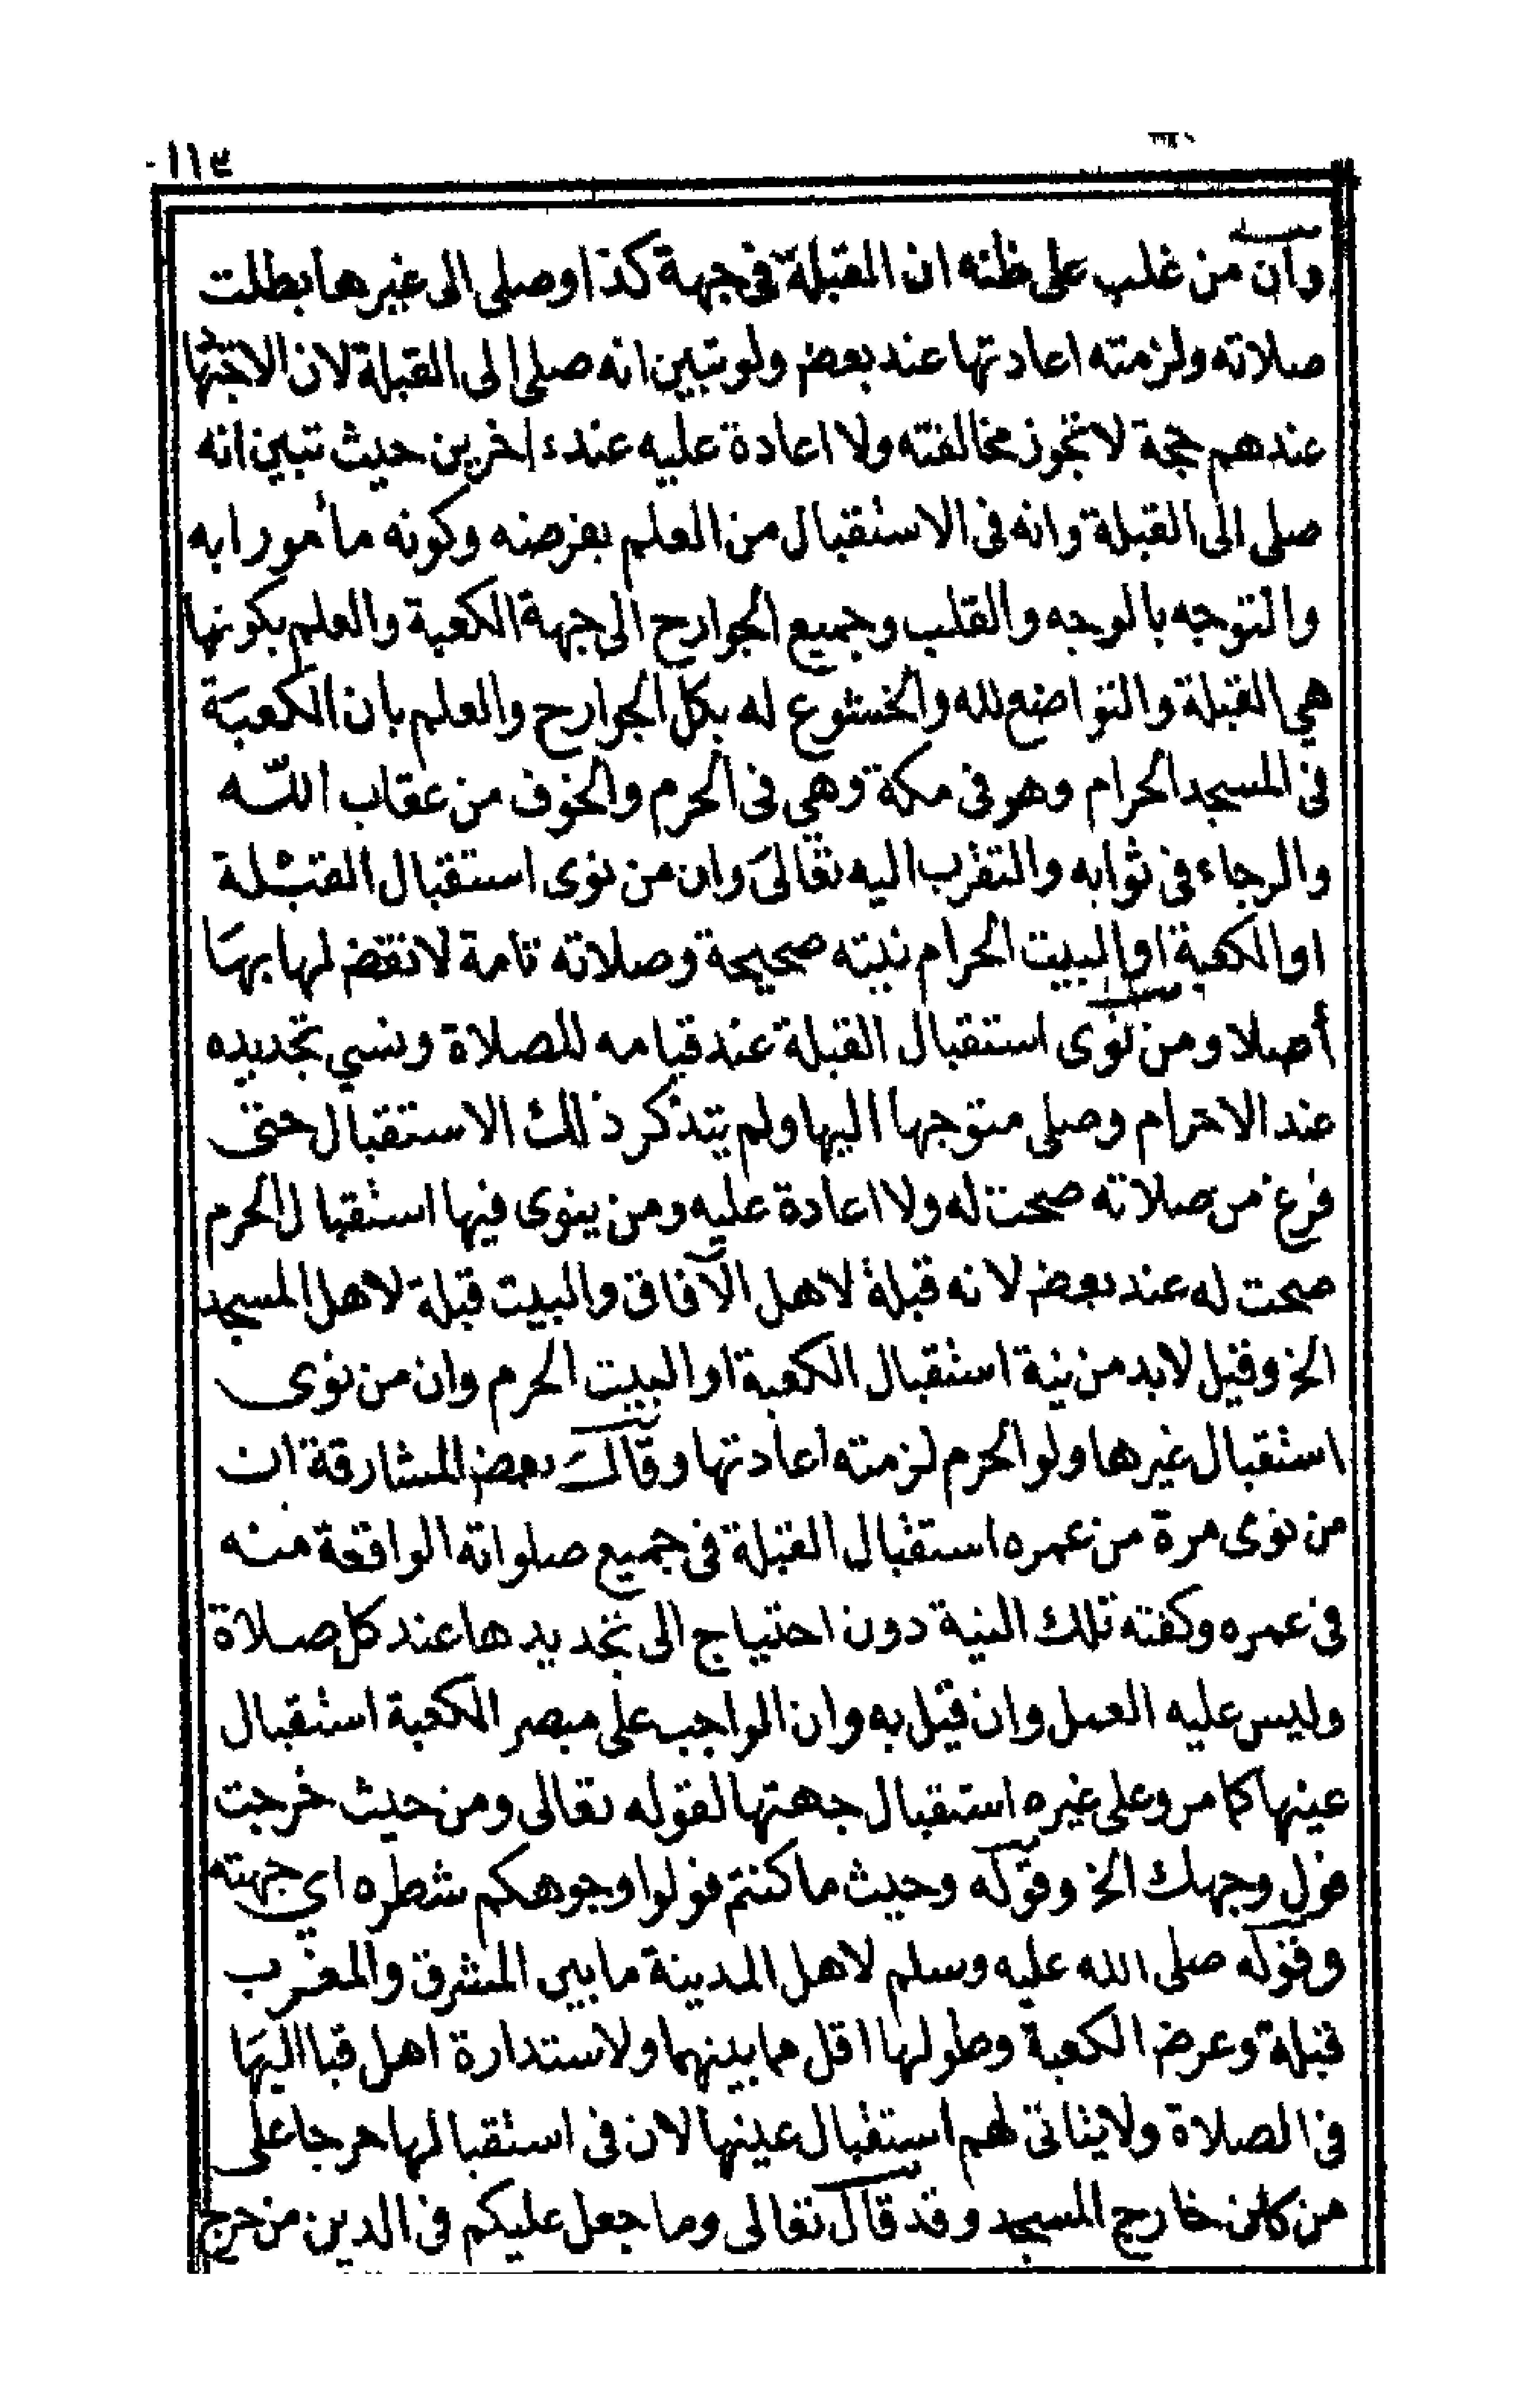 ١١٩
وان من غلب على ظنه ان القبلة في جهة كذا وصلى الى غيرها بطلت
صلاته ولزمته اعادتها عند بعض ولو تبين انه صلى الى القبلة لان الاجتهاد
عندهم حجة لا تجوز مخالفته ولا اعادة عليه عند ءاخرين حيث تبين انه
صلى الى القبلة وانه فى الاستقبال من العلم بفرضه وكونه مأمورا به
والتوجه بالوجه والقلب وجميع الجوارح الى جهة الكعبة والعلم بكونها
هي القبلة والتواضع لله والخشوع له بكل الجوارح والعلم بان الكعبة
فى المسجد الحرام وهو فى مكة وهي فى الحرم والخوف من عقاب الله
والرجاء فى ثوابه والتقرب اليه تعالى وان من نوى استقبال القبلة
او الكعبة او البيت الحرام نيته صحيحة وصلاته تامة لا نقض لها بها
أصلا ومن نوى استقبال القبلة عند قيامه للصلاة ونسي تجديده
عند الاحرام وصلى متوجها اليها ولم يتذكر ذلك الاستقبال حتى
فرغ من صلاته صحت له ولا اعادة عليه ومن ينوى فيها استقبال الحرم
صحت له عند بعض لانه قبلة لاهل الآفاق والبيت قبلة لاهل المسجد
الخ وقيل لابد من نية استقبال الكعبة او البيت الحرم وان من نوى
استقبال غيرها ولو الحرم لزمته اعادتها وقال بعض المشارقة ان
من نوى مرة من عمره استقبال القبلة فى جميع صلواته الواقعة منه
فى عمره وكفته تلك النية دون احتياج الى تجديدها عند كل صلاة
وليس عليه العمل وان قيل به وان الواجب على مبصر الكعبة استقبال
عينها كما مر وعلى غيره استقبال جهتها لقوله تعالى ومن حيث خرجت
فول وجهك الخ وقوله وحيث ما كنتم فولوا وجوهكم شطره اي جهته
وقوله صلى الله عليه وسلم لاهل المدينة ما بين المشرق والمغرب
قبلة وعرض الكعبة وطولها اقل مما بينهما ولاستدارة اهل قبا اليها
فى الصلاة ولا يتاتى لهم استقبال عينها لان فى استقبالها حرجا على
من كان خارج المسجد وقد قال تعالى وما جعل عليكم فى الدين من حرج